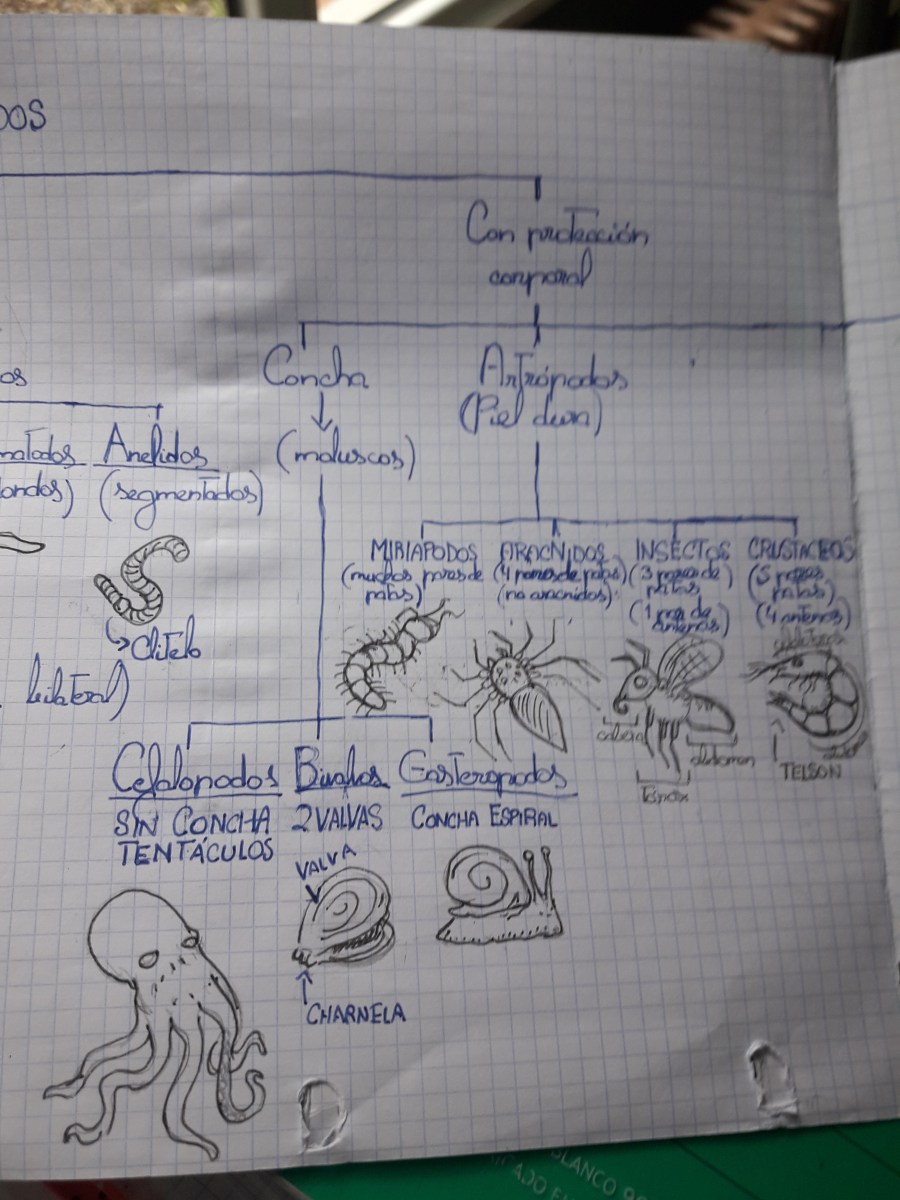 DOS
Con protección
corporal
Concha
(moluscos)
Artrópodos
(Piel dura)
os
matodos
ondos)
Anelidos
(segmentados)
Clitelo
bilateral)
MIRIAPODOS
(muchos pares de
patas)
ARACNIDOS
(4 pares de patas)
INSECTOS
(3 pares de
patas)
(1 par de
antenas)
CRUSTACEOS
(5 pares
patas)
(4 antenas)
cabeza
Torax
abdomen
TELSON
Cefalopodos
SIN CONCHA
TENTÁCULOS
Bivalvos
2 VALVAS
VALVA
CHARNELA
Gasteropodos
CONCHA ESPIRAL
BLANCO 90